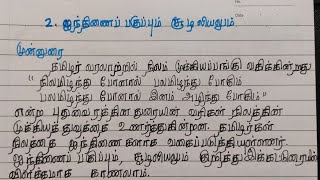 2. ஐந்திணைப் பகுப்பும் சூழலியலும்
முன்னுரை
தமிழர் வரலாற்றில் நிலம் முக்கியப்பங்கு வகிக்கின்றது
" நிலமிழந்து போனால் பலமிழந்து போகும்
பலமிழந்து போனால் இனம் அழிந்து போகும்"
என்ற புதுவைரத்தின துரையின் வரிகள் நிலத்தின்
முக்கியத்துவத்தை உணர்த்துகின்றன. தமிழர்கள்
நிலத்தை ஐந்திணைகளாக வகைப்படுத்தியுள்ளனர்.
ஐந்திணைப் பகுப்பும், சூழலியலும் குறித்து இக்கட்டுரையின்
காணலாம்.